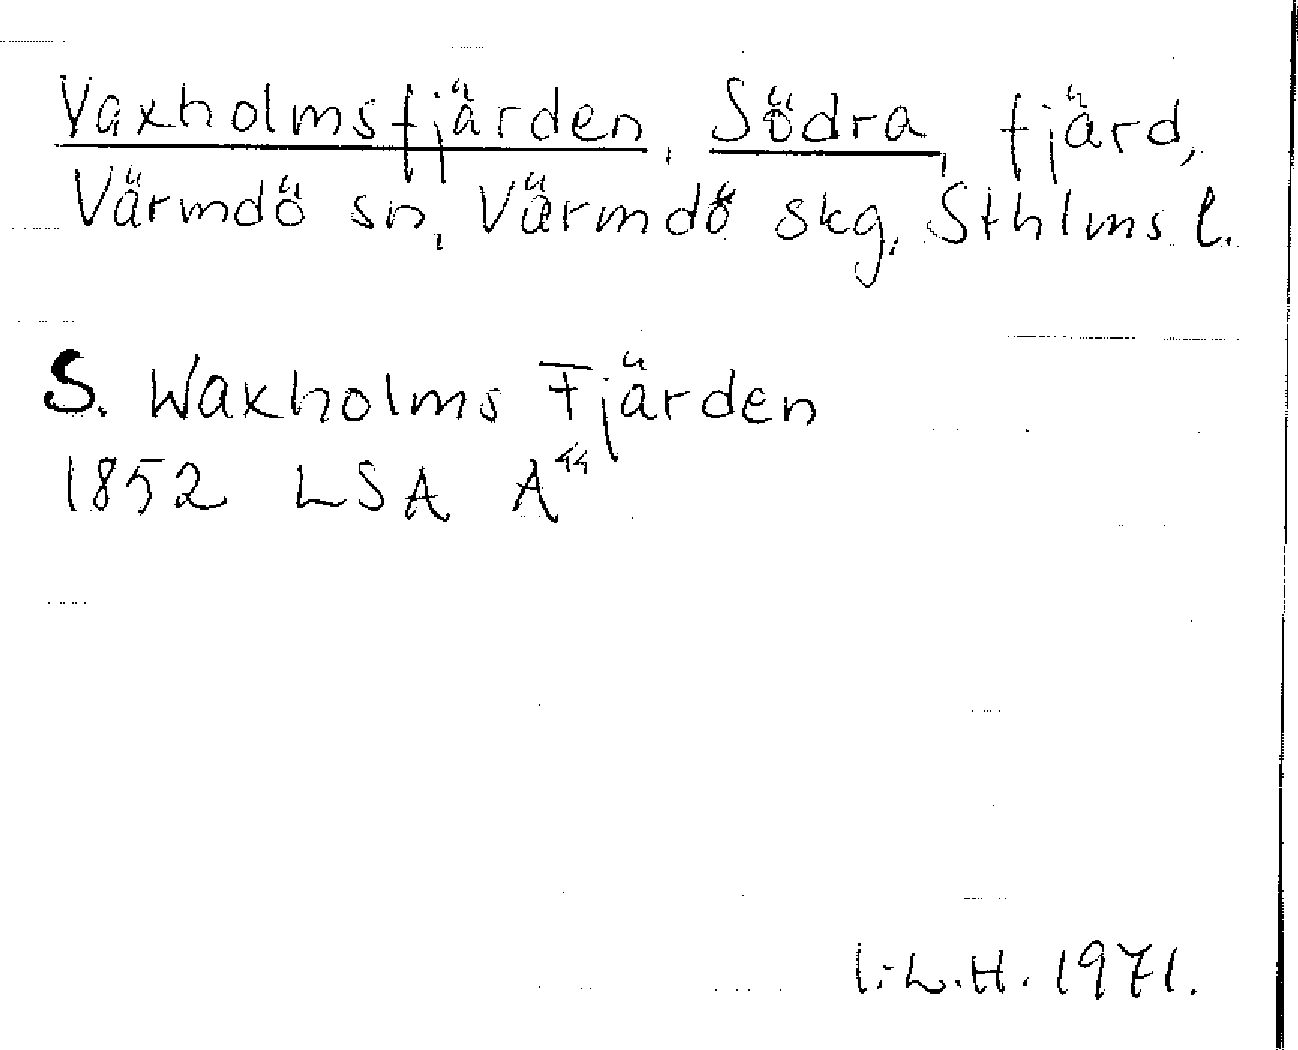 Vaxholmsfjärden, Södra, fjärd,
Värmdö sn, Värmdö skg, Sthlms l.
S. Waxholms Fjärden
1852 LSA A⁴⁴
I.L.H. 1971.